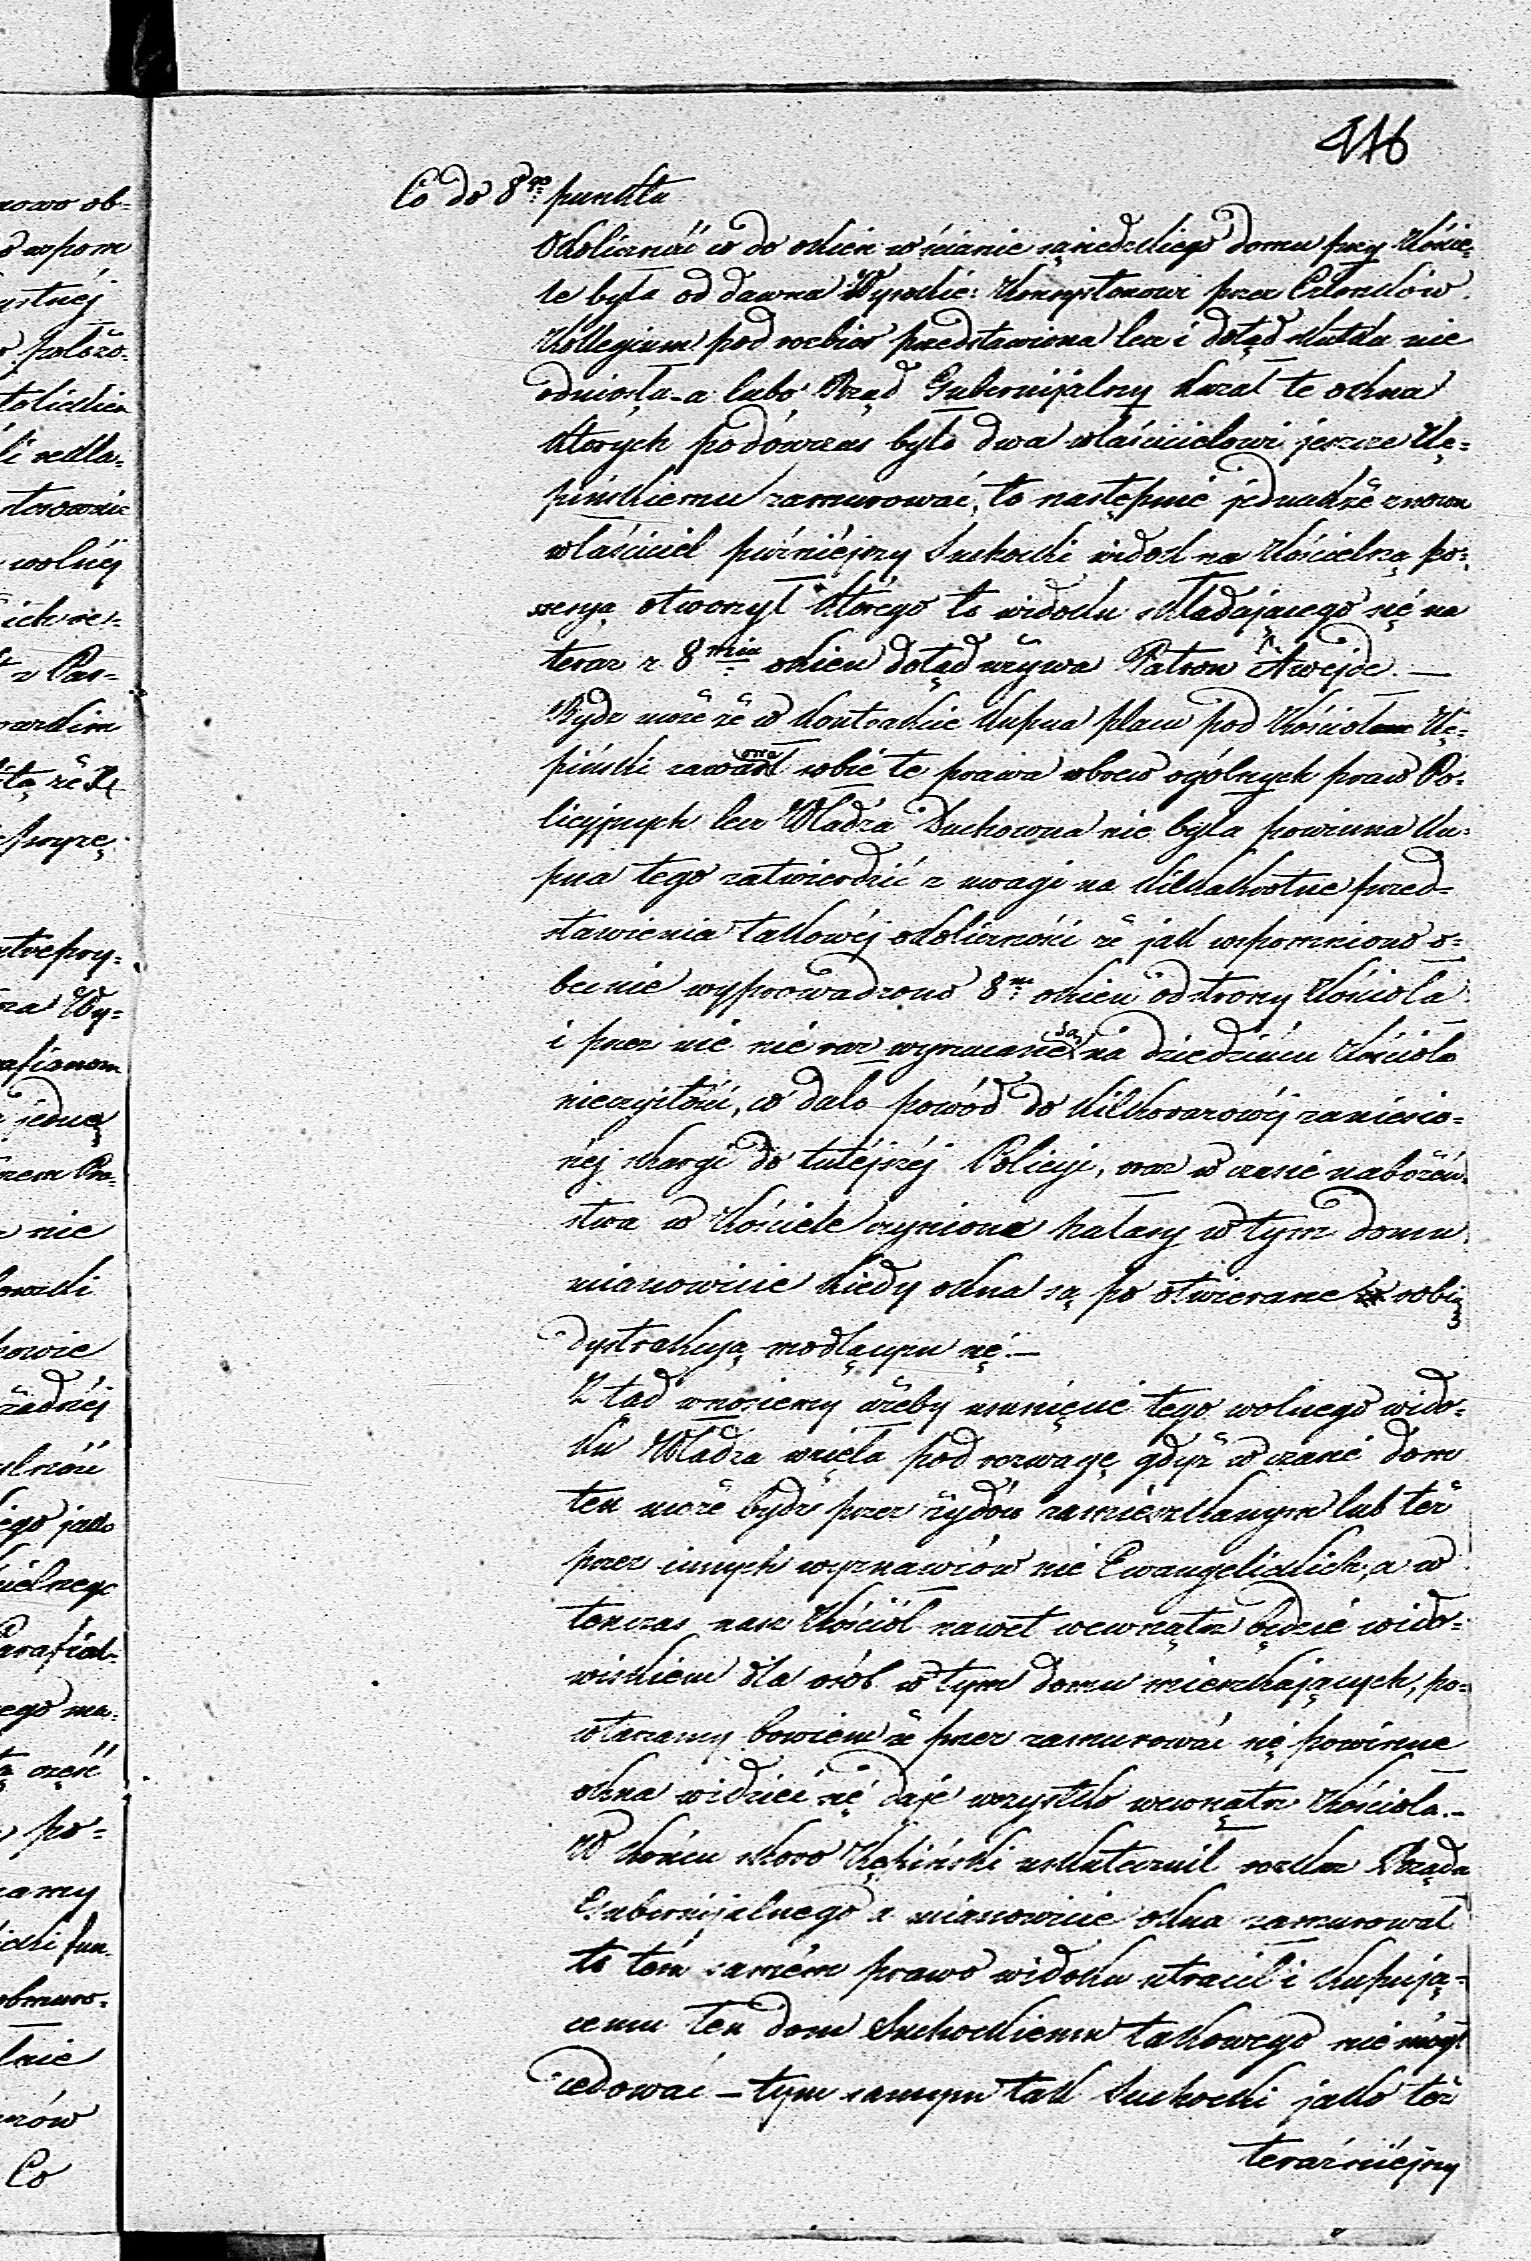 416
Co do 8go punktu
Okoliczność co do okien w ścianie sąsiedzkiego domu przy Koście-
le była od dawna Wysokie: Konsystorzowi przez Członków
Kollegium pod rozbiór przedstawiona lecz i dotąd skutku nie
odniosła - a lubo Rząd Gubernijalny kazał te okna
których podówczas było dwa właścicielowi jeszcze Kę-
pińskiemu zamurować, to następnie jednakże znowu
właściciel późniejszy Suchocki widok na Kościelną po-
sesyą otworzył którego to widoku składającego się na
teraz z 8miu okien dotąd używa Patron Awejde. —
Bydź może że w kontrakcie kupna placu pod Kościół Kę-
piński zawarował sobie te prawa wbrew ogólnych praw Po-
licyjnych lecz Władza Duchowna nie była powinna ku-
pna tego zatwierdzić z uwagi na kilkakrotne przed-
stawienia takowéj okoliczności że jak wspomniono o-
becnie wyprowadzono 8m okien od strony Kościoła
i przez nie nie raz wyrzucane są na dziedziniec Kościoła
nieczystości, co dało powód do kilkorazowéj zaniesio-
néj skargi do tutéjszéj Policyi, oraz w czasie nabożeń-
stwa w Kościele czynione hałasy w tym domu
mianowicie kiedy okna są po otwierane robią
dystrakcyą modlącym się. —
Z tad wnosiemy ażeby usunięcie tego wolnego wido-
ku Władza wzięła pod rozwagę gdyż w czasie dom
ten może bydź przez żydów zamieszkanym lub też
przez innych wyznawców nie Ewangelickich, a w
tenczas nasz Kościół nawet wewnątrz będzie wido-
wiskiem dla osób w tym domu mieszkających, po-
wtarzamy bowiem że przez zamurować się powinne
okna widzieć się daje wszystko wewnątrz Kościoła. -
W końcu skoro Kępiński uskutecznił rozkaz Rządu
Gubernijalnego a mianowicie okna zamurował
to tém samém prawo widoku utracił i kupują-
cemu ten dom Suchockiemu takowego nie mógł
cedować — tym samym tak Suchocki jako też
teraźniéjszy